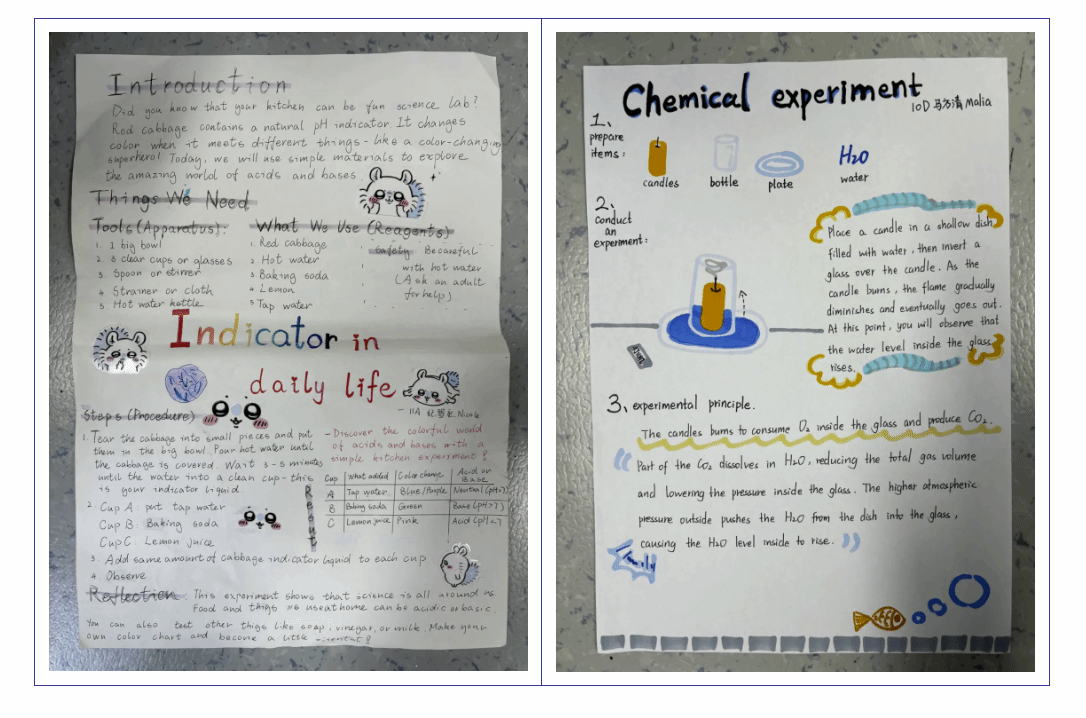 Introduction
Did you know that your kitchen can be fun science lab?
Red cabbage contains a natural pH indicator. It changes
color when it meets different things - like a color-changing
superhero! Today, we will use simple materials to explore
the amazing world of acids and bases.
Things We Need
Tools (Apparatus):
1. 1 big bowl
2. 3 clear cups or glasses
3. Spoon or stirrer
4. Strainer or cloth
5. Hot water kettle
What We Use (Reagents)
1. Red cabbage
2. Hot water
3. Baking soda
4. Lemon
5 Tap water
Safety: Be careful
with hot water
(Ask an adult
for help)
Indicator in
daily life
- 11A Nicole
- Discover the colorful world
of acids and bases with a
simple kitchen experiment!
Steps (Procedure)
1. Tear the cabbage into small pieces and put
them in the big bowl. Pour hot water until
the cabbage is covered. Wait 3-5 minutes
until the water into a clean cup - this
is your indicator liquid.
2. Cup A: put tap water
Cup B: Baking soda
Cup C: Lemon juice
3. Add same amount of cabbage indicator liquid to each cup
4. Observe
Result
Cup What added Color change Acid or Base
A Tap water Blue/Purple Neutral (pH=7)
B Baking soda Green Base (pH>7)
C Lemon juice Pink Acid (pH<7)
Reflection: This experiment shows that science is all around us
Food and thigs we use at home can be acidic or basic.
You can also test other thigs like soap, vinegar, or milk. Make your
own color chart and become a little scientist!
Chemical experiment
10D 马方清 Malia
1、
prepare
items:
candles
bottle
plate
H₂O
water
2、
conduct
an
experiment:
Place a candle in a shallow dish
filled with water, then invert a
glass over the candle. As the
candle burns, the flame gradually
diminishes and eventually goes out.
At this point, you will observe that
the water level inside the glass
rises.
3、experimental principle.
The candles burns to consume O₂ inside the glass and produce CO₂.
"Part of the CO₂ dissolves in H₂O, reducing the total gas volume
and lowering the pressure inside the glass. The higher atmospheric
pressure outside pushes the H₂O from the dish into the glass,
causing the H₂O level inside to rise."